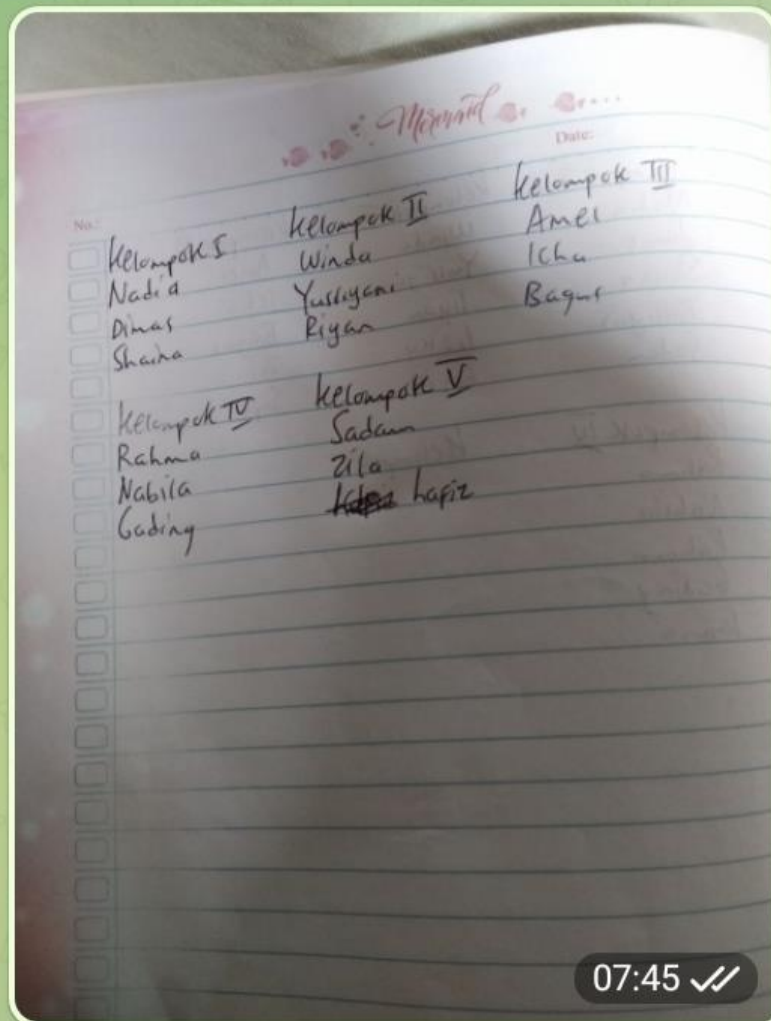 Mermaid
No.:
Date:
Kelompok I
Nadia
Dimas
Shaina
Kelompok II
Winda
Yusriyani
Riyan
Kelompok III
Amel
Icha
Bagus
Kelompok IV
Rahma
Nabila
Gading
Kelompok V
Sadam
Zila
hafiz
07:45